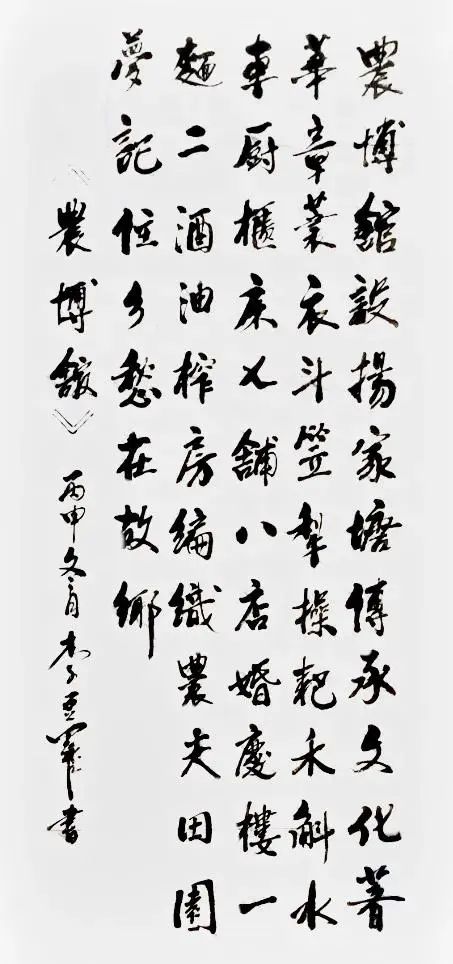 農博舘設揚家塘傳承文化著
華章蓑衣斗笠犁操耙禾斛水
車厨櫃床七舖八店婚慶樓一
麵二酒油榨房編織農夫田園
夢記住乡愁在故鄉
《農博舘》 丙申冬月李書